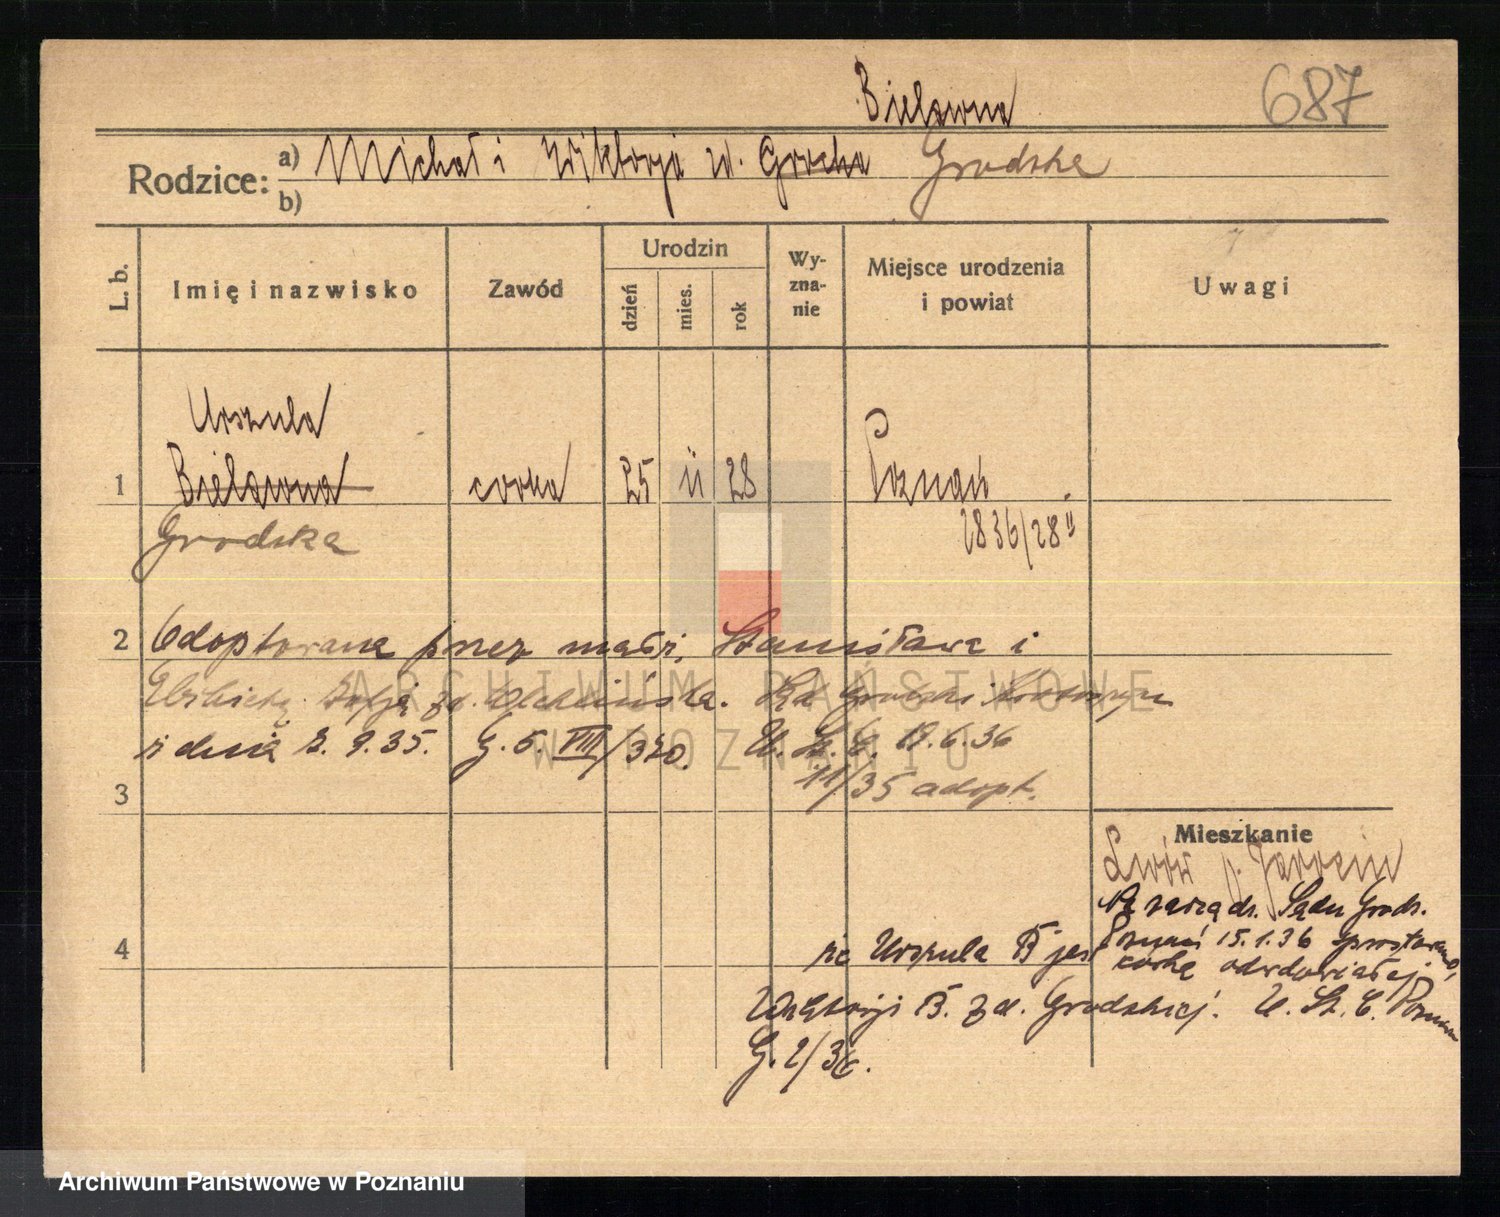 687
Bielawna
Rodzice: a) Michał i Wiktorja zd. Grocka Grodzka
b)
L. b. Imię i nazwisko Zawód Urodzin dzień mies. rok Wy-zna-nie Miejsce urodzenia i powiat Uwagi
Urszula
1 Bielawna córka 25 11 28 Poznań
Grodzka 2836/28 II
2 Adoptowana przez małż. Stanisława i
Elżbietę Zofję zd. Sąd Grodzki
z dnia 2. 9. 35. G. 6. VIII/320. U. St. C. 17.6.36
3 11/35 adopt.
Mieszkanie
Lwów p. Jarocin
Na zarządz. Sądu Grodz.
Poznań 15.1.36 sprostowano,
4 że Urszula B. jest córką odwdowiałej
Wiktorji B. zd. Grodzkiej. U. St. C. Poznań
G. 2/36.
ARCHIWUM PAŃSTWOWE
W POZNANIU
Archiwum Państwowe w Poznaniu